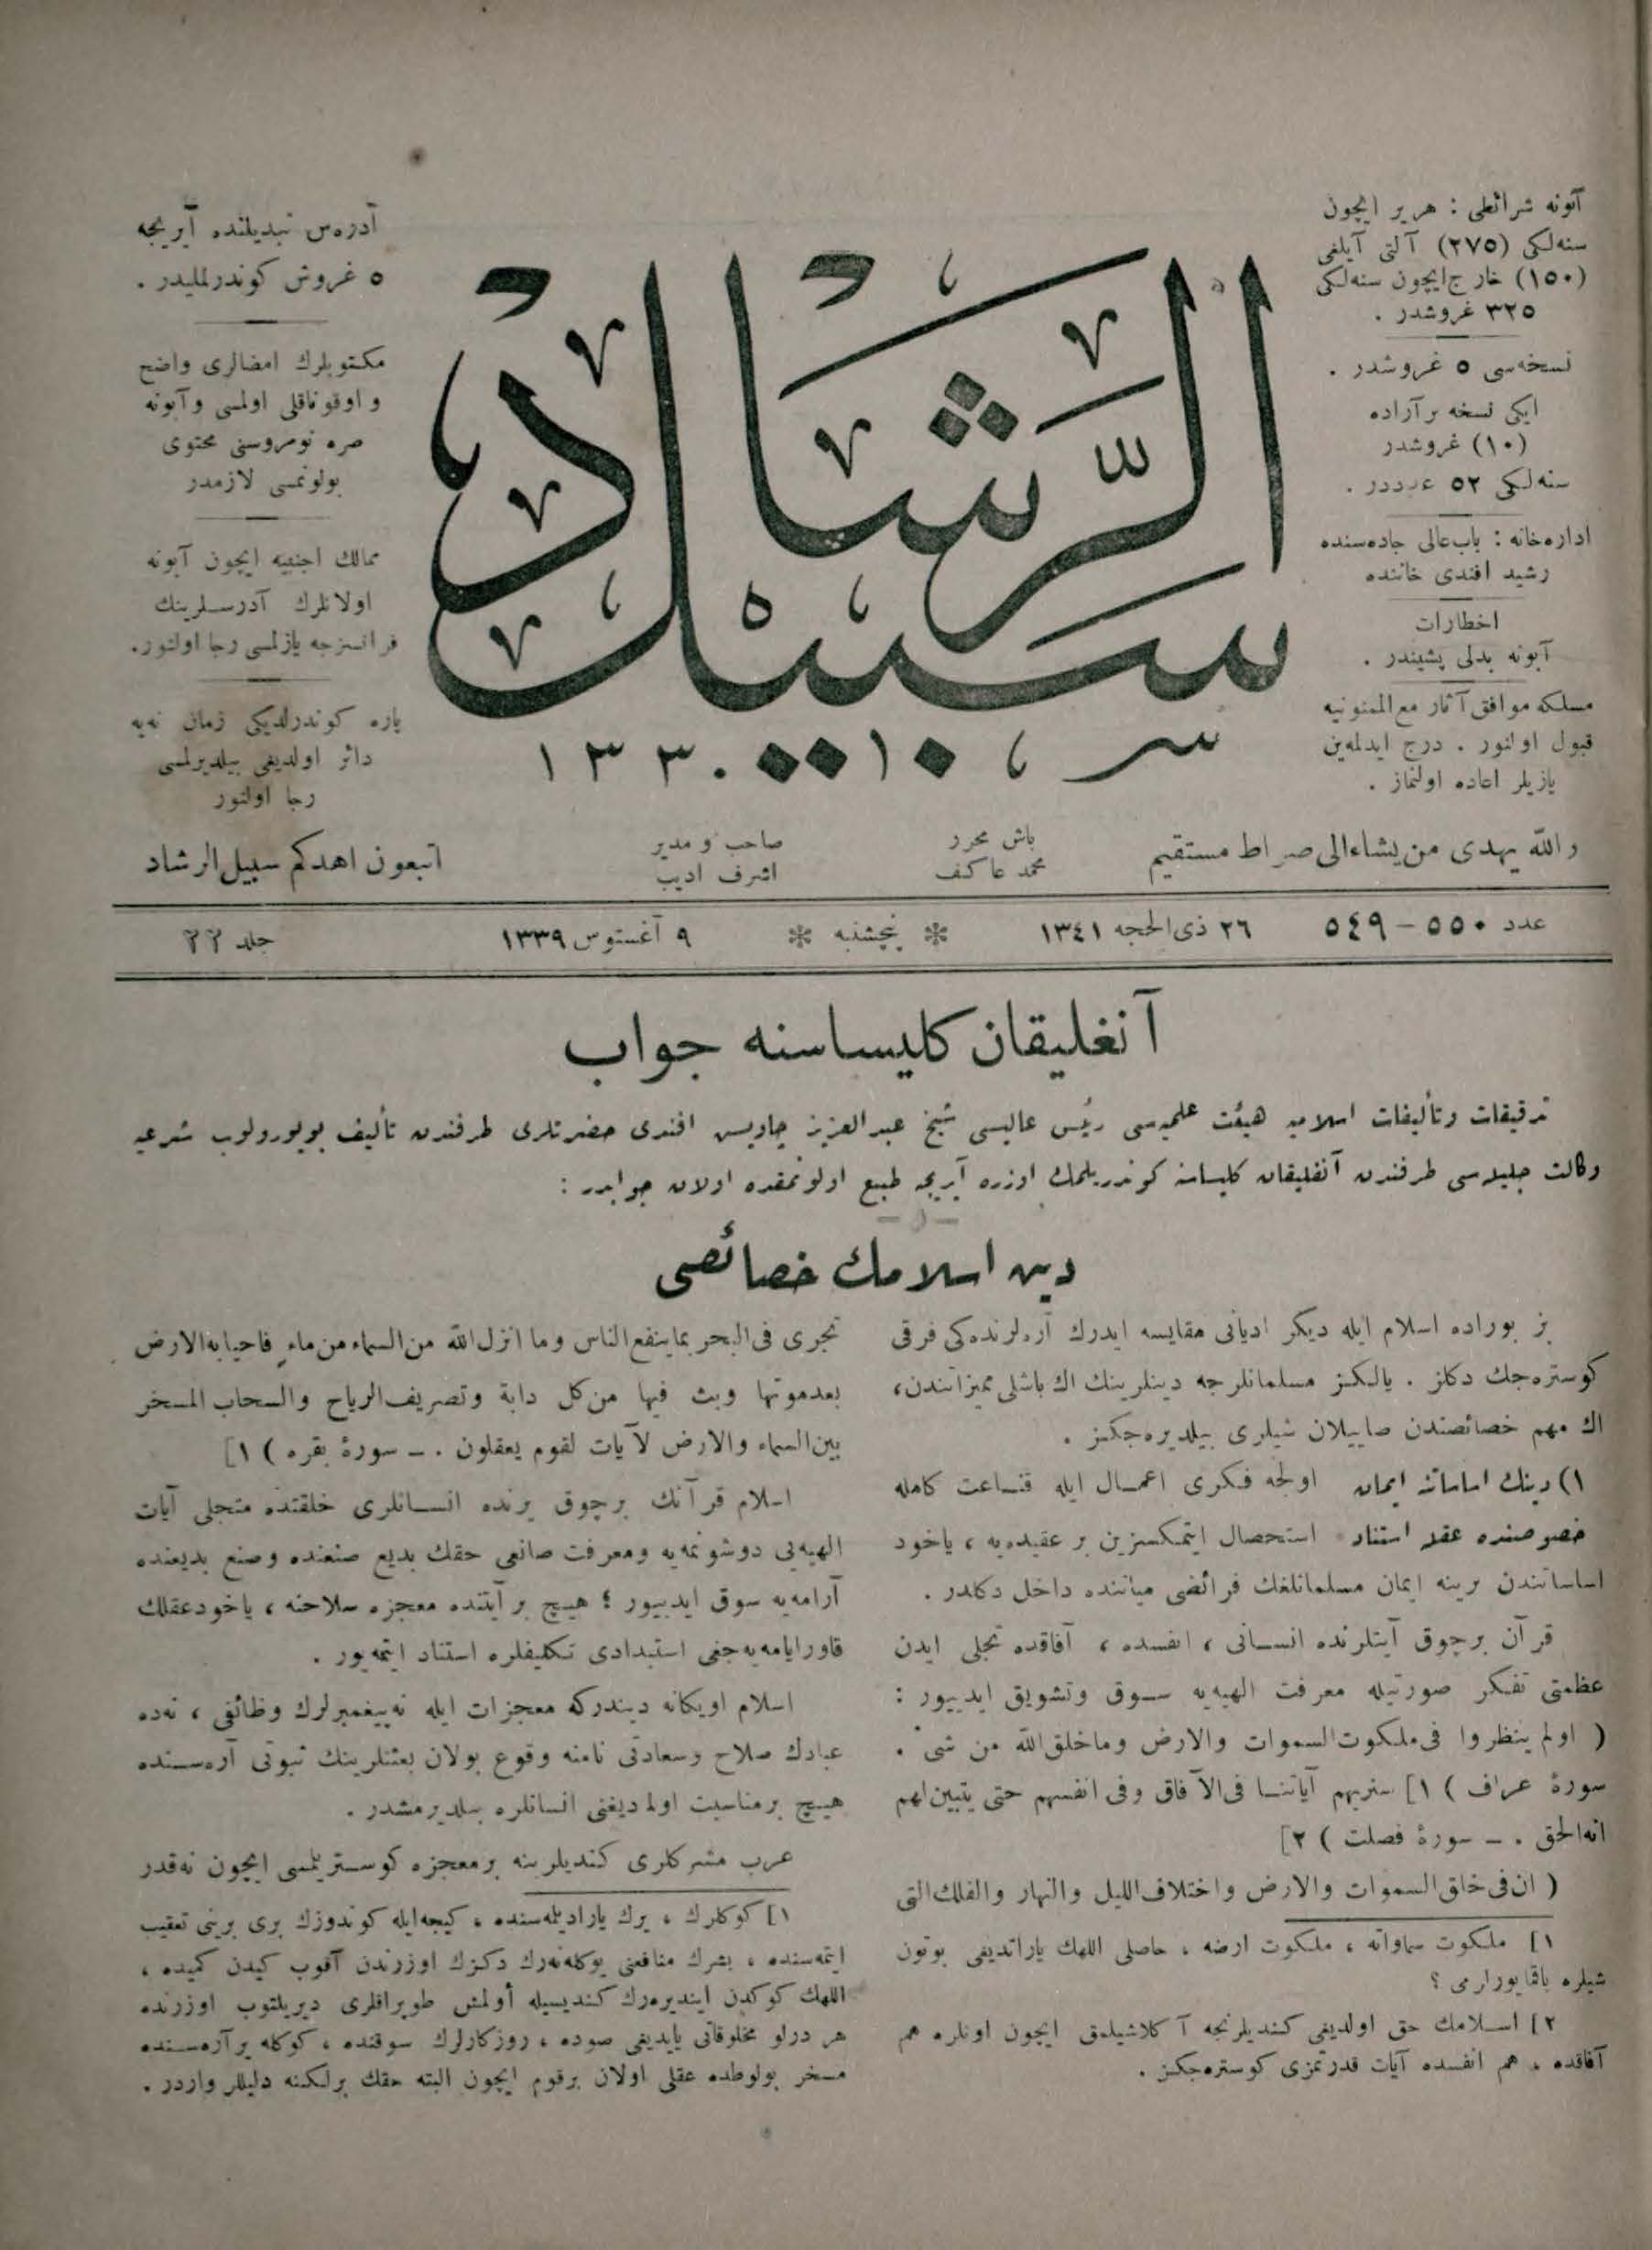 آبونه شرائطی : هر یر ایچون
سنه‌لكی (٢٧٥) آلتی آیلغی
(١٥٠) خارج ایچون سنه‌لكی
٣٢٥ غروشدر .
نسخه‌سی ٥ غروشدر .
ایكی نسخه بر آراده
(١٠) غروشدر
سنه‌لكی ٥٢ عدددر .
اداره‌خانه : باب‌عالی جاده‌سنده
رشید افندی خاننده
اخطارات
آبونه بدلی پشیندر .
مسلكه موافق آثار مع‌الممنونیه
قبول اولنور . درج ایدلمه‌ین
یازیلر اعاده اولنماز .
سبیل الرشاد
١٣٣٠
آدره‌س تبدیلنده آیریجه
٥ غروش كوندرلملیدر .
مكتوبلرك امضالری واضح
و اوقوناقلی اولمسی و آبونه
صره نومروسنی محتوی
بولونمسی لازمدر
ممالك اجنبیه ایچون آبونه
اولانلرك آدرسلرینك
فرانسزجه یازلمسی رجا اولنور.
پاره كوندرلدیكی زمان نه‌یه
دائر اولدیغی بیلدیرلمسی
رجا اولنور
والله یهدی من یشاء الی صراط مستقیم
باش محرر
محمد عاكف
صاحب و مدیر
اشرف ادیب
اتبعون اهدكم سبیل‌الرشاد
عدد ٥٥٠ – ٥٤٩ ٢٦ ذی‌الحجه ١٣٤١ پنچشنبه ٩ آغستوس ١٣٣٩ جلد ٢٢
آنغلیقان كلیساسنه جواب
تدقیقات و تألیفات اسلامیه هیئت علمیه‌سی رئیس عالیسی شیخ عبدالعزیز چاویش افندی حضرتلری طرفندن تألیف بویورولوب شرعیه
وكالت جلیله‌سی طرفندن آنغلیقان كلیساسنه كوندریلمك اوزره آیریجه طبع اولونمقده اولان جوابدر :
دین اسلامك خصائصی
بز بوراده اسلام ایله دیكر ادیانی مقایسه ایدرك آره‌لرنده‌كی فرقی
كوستره‌جك دكلز . یالكز مسلمانلرجه دینلرینك اك باشلی ممیزاتندن،
اك مهم خصائصندن صاییلان شیلری بیلدیره‌جكز .
١) دینك اساساتنه ایمان اولجه فكری اعمال ایله قناعت كامله
خصوصنده عقله استناد استحصال ایتمكسزین بر عقیده‌یه ، یاخود
اساساتندن برینه ایمان مسلمانلغك فرائضی میاننده داخل دكلدر .
قرآن برچوق آیتلرنده انسانی ، انفسده ، آفاقده تجلی ایدن
عظمتی تفكر صورتیله معرفت الهیه‌یه سوق و تشویق ایدییور :
( اولم ینظروا فی ملكوت‌السموات والارض وماخلق‌الله من شیء .
سورهٔ عراف ) ١] سنریهم آیاتنا فی‌الآفاق وفی انفسهم حتی یتبین لهم
انه‌الحق . ــ سورهٔ فصلت ) ٢]
( ان فی خلق السموات والارض واختلاف‌اللیل والنهار والفلك‌التی
١] ملكوت سماواته ، ملكوت ارضه ، حاصلی اللهك یاراتدیغی بوتون
شیلره باقمایورلرمی ؟
٢] اسلامك حق اولدیغی كندیلرنجه آكلاشیلمق ایچون اونلره هم
آفاقده ، هم انفسده آیات قدرتمزی كوستره‌جكز .
تجری فی‌البحر بماینفع‌الناس وما انزل‌الله من‌السماء من‌ماء فاحیا به‌الارض
بعدموتها وبث فیها من‌كل دابة وتصریف‌الریاح والسحاب المسخر
بین‌السماء والارض لآیات لقوم یعقلون . ــ سورهٔ بقره ) ١]
اسلام قرآنك برچوق یرنده انسانلری خلقتده متجلی آیات
الهیه‌یی دوشونمه‌یه ومعرفت صانعی حقك بدیع صنعنده وصنع بدیعنده
آرامه‌یه سوق ایدییور ؛ هیچ بر آیتنده معجزه سلاحنه ، یاخود عقلك
قاورایامه‌یه‌جغی استبدادی تكلیفلره استناد ایتمه‌یور .
اسلام اویكانه دیندركه معجزات ایله نه پیغمبرلرك وظائفی ، نه‌ده
عبادك صلاح وسعادتی نامنه وقوع بولان بعثتلرینك ثبوتی آره‌سنده
هیچ برمناسبت اولمادیغنی انسانلره بیلدیرمشدر .
عرب مشركلری كندیلرینه برمعجزه كوستریلمسی ایچون نه‌قدر
١] كوكلرك ، یرك یارادیلمه‌سنده ، كیجه‌ایله كوندوزك بری برینی تعقیب
ایتمه‌سنده ، بشرك منافعنی یوكله‌نه‌رك دكزك اوزرندن آقوب كیدن كمیده ،
اللهك كوكدن ایندیره‌رك كندیسیله أولمش طوپراقلری دیریلتوب اوزرنده
هر درلو مخلوقاتی یایدیغی صوده ، روزكارلرك سوقنده ، كوكله یر آره‌سنده
مسخر بولوطده عقلی اولان برقوم ایچون البته حقك برلكنه دلیللر واردر .